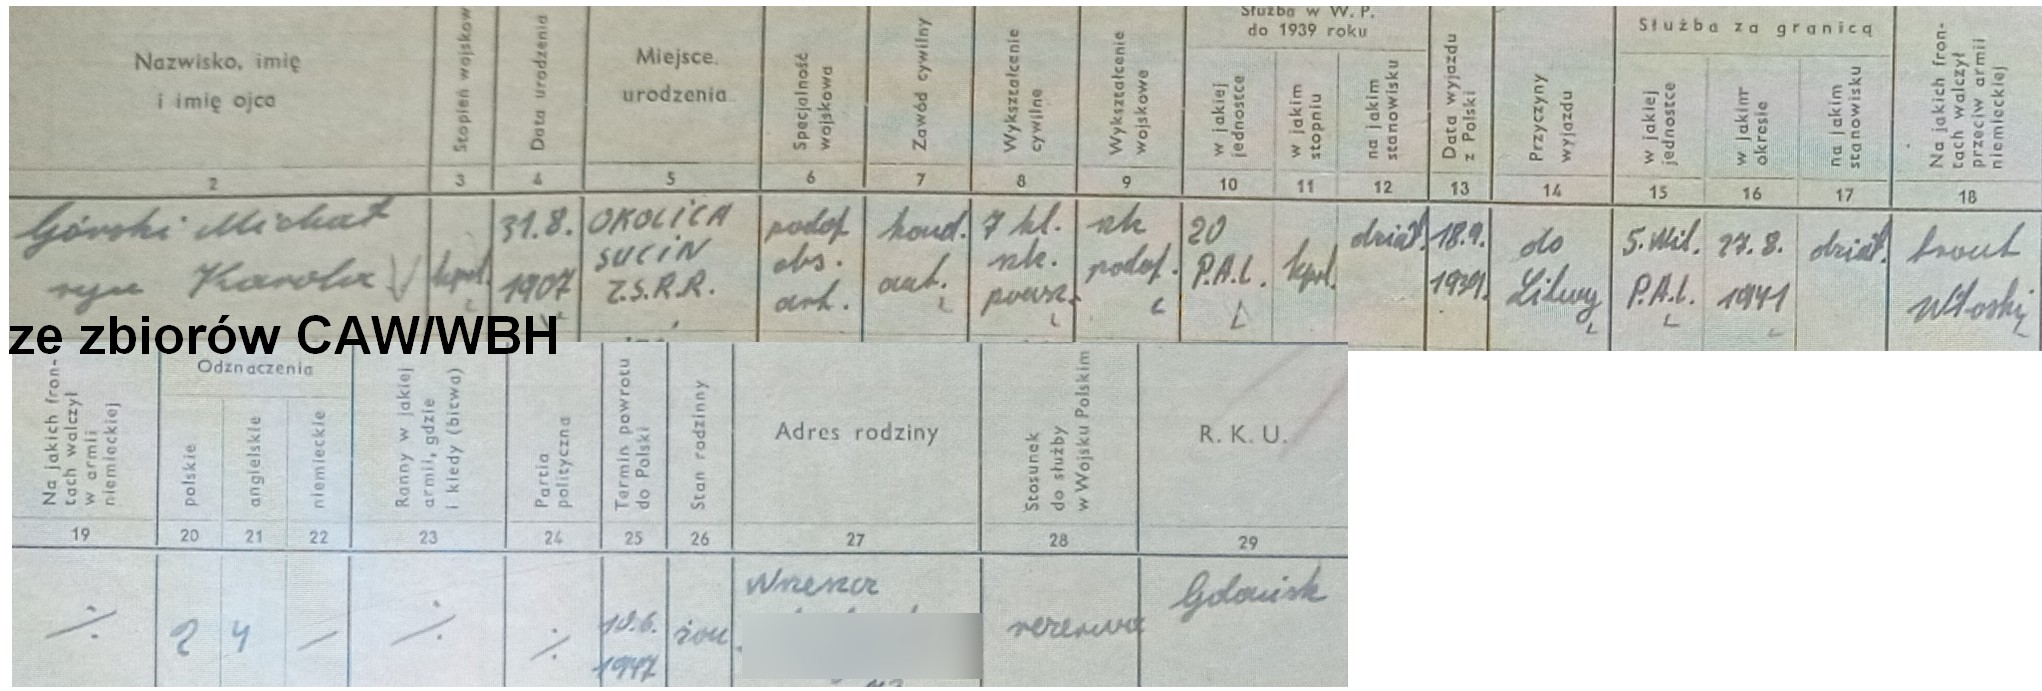 Nazwisko, imię
i imię ojca
Stopień wojskow
Data urodzenia
Miejsce
urodzenia
Specjalność
wojskowa
Zawód cywilny
Wykształcenie
cywilne
Wykształcenie
wojskowe
Służba w W. P.
do 1939 roku
w jakiej
jednostce
w jakim
stopniu
na jakim
stanowisku
Data wyjazdu
z Polski
Przyczyny
wyjazdu
Służba za granicą
w jakiej
jednostce
w jakim
okresie
na jakim
stanowisku
Na jakich fron-
tach walczył
przeciw armii
niemieckiej
2 3 4 5 6 7 8 9 10 11 12 13 14 15 16 17 18
Górski Michał
Karola
kprl.
31.8.
1907
OKOLICA
SUCIN
Z.S.R.R.
podof.
obs.
art.
kond.
aut.
7 kl.
nk.
powsz.
nk
podof.
20
P.A.L.
kprl.
dział.
18.9.
1939.
do
Litwy
5. Wil.
P.A.L.
27.8.
1941
dział.
front
Włoski
ze zbiorów CAW/WBH
Na jakich fron-
tach walczył
w armii
niemieckiej
Odznaczenia
polskie
angielskie
niemieckie
Ranny w jakiej
armii, gdzie
i kiedy (bitwa)
Partia
polityczna
Termin powrotu
do Polski
Stan rodzinny
Adres rodziny
Stosunek
do służby
w Wojsku Polskim
R. K. U.
19 20 21 22 23 24 25 26 27 28 29
2
4
10.6.
1947
żon.
rezerwa
Gdańsk